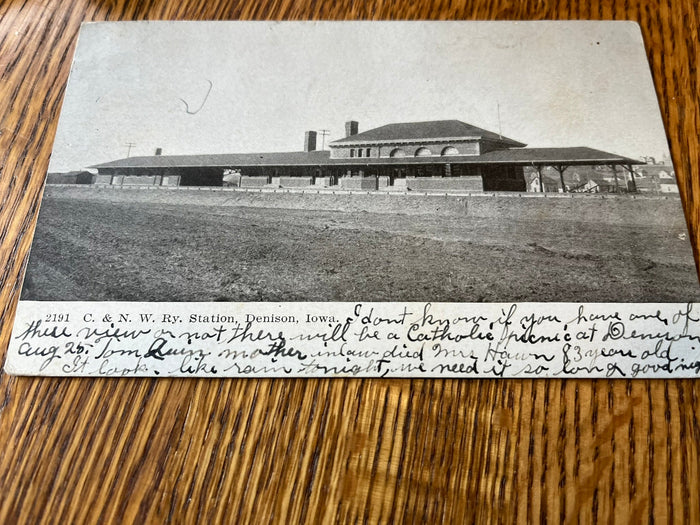 2191 C. & N. W. Ry. Station, Denison, Iowa. I dont know if you have one of
these view or not there will be a Catholic picnic at Denison
Aug 25. Tom Quin mother inlaw died Mrs Hawn 83 years old
It look. like rain tonight, we need it so long good nig